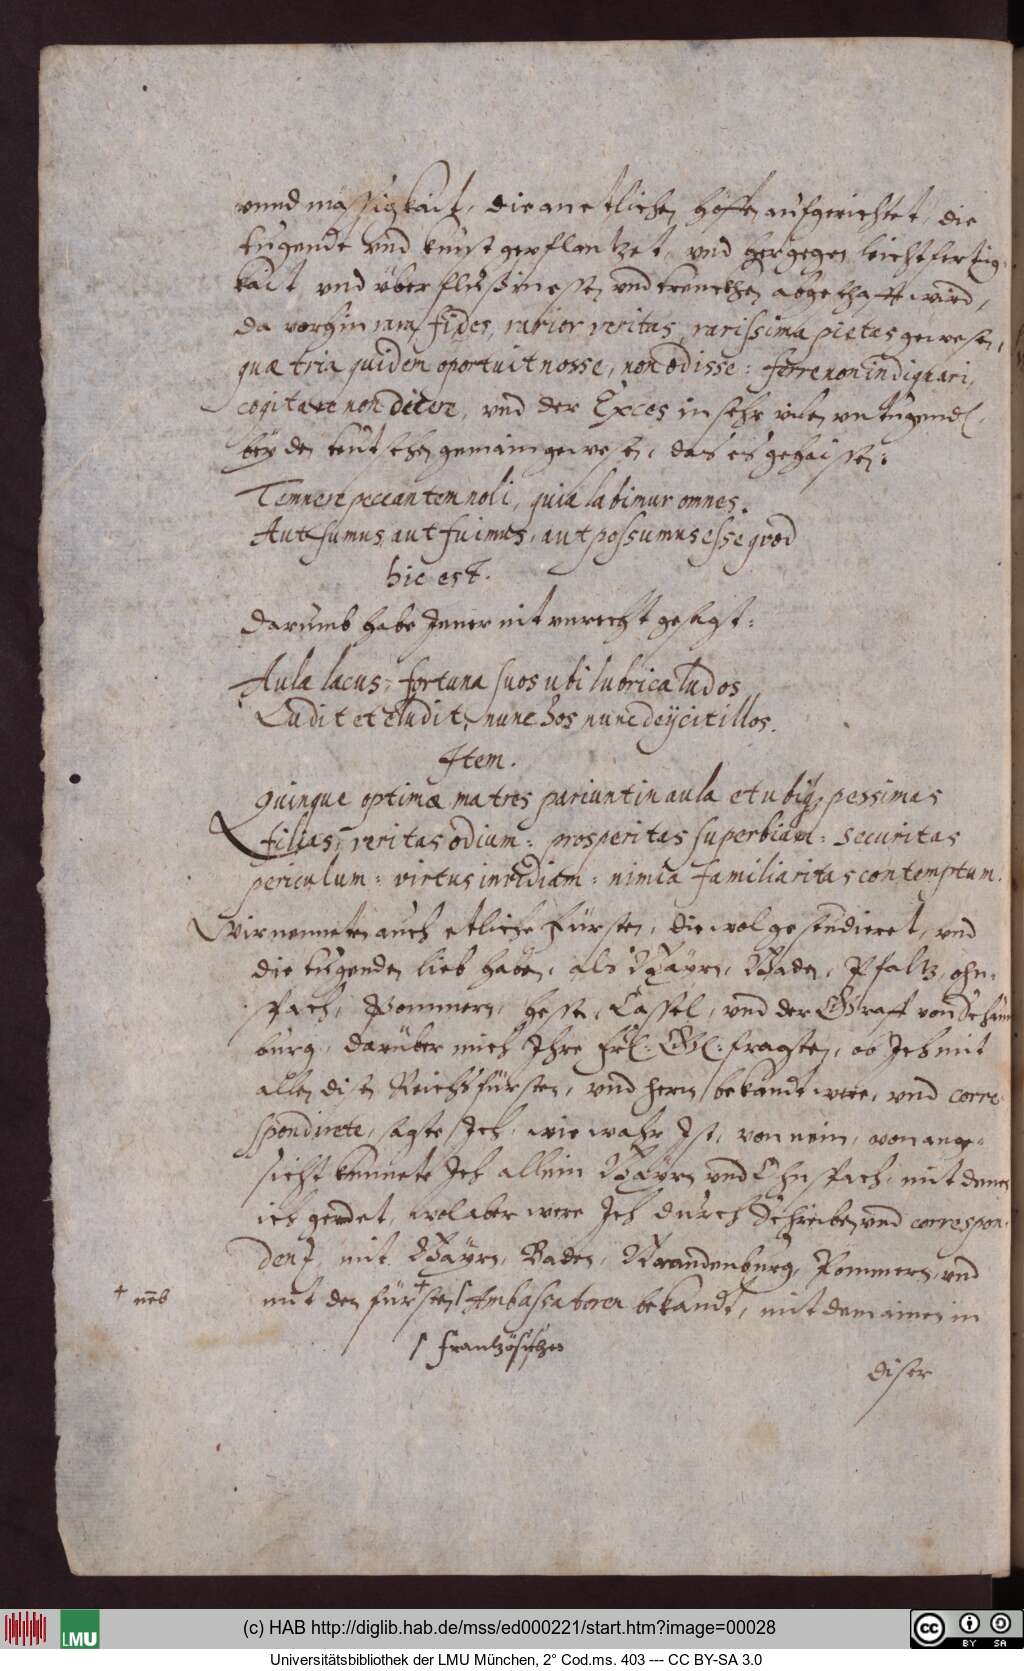 vnnd mässigkait, die an etlichen höffen aufgerichtet, die
tugende vnd kunst gepflantzet, vnd hergegen leichtfertig-
kait vnd überflüssig essen vnd trinckhen abgeschafft wird,
da vorhin rara fides, rarior veritas, rarissima pietas gewesen,
quæ tria quidem oportuit nosse, non odisse: ferre non indignari,
cogitare non dicere, vnd der Exces in sehr vilen vntugend
bey den teutschen gemain gewesen, das es gehaissen:
Temnere peccantem noli, quia labimur omnes.
Aut sumus, aut fuimus, aut possumus esse quod
hic est.
Darumb habe Jener nit vnrecht gesagt:
Aula lacus, fortuna suos ubi lubrica ludos
Ludit et eludit, nunc hos nunc deijcit illos.
Item.
Quinque optimæ matres pariunt in aula et ubiq, pessimas
filias, veritas odium: prosperitas superbiam: securitas
periculum: virtus invidiam: nimia familiaritas contemptum.
Wir nenneten auch etliche Fürsten, die wol gestudieret, vnd
die tugenden lieb haben, als Bayrn, Baden, Pfaltz, ohn-
spach, Pommern, Hessen, Cassel, vnd der Graff von Scham
burg, darüber mich Ihre Frl: Gl: fragten, ob Ich mit
allen disen Reichsfürsten, vnd hern bekandt were, vnd corre-
spondirete, sagte Ich, wie wahr Ist, von nein, von ange-
sicht kennete Ich allein Bayrn vnd Ohnspach, mit denen
ich geredet, wol aber were Ich durch Schreiben vnd correspon-
denz mit Bayrn, Baden, Brandenburg, Pommern, vnd
† neb
mit den für†sten ſ Ambassatoren bekandt, mit dem ainen in
ſ französischen
diser
(c) HAB http://diglib.hab.de/mss/ed000221/start.htm?image=00028
LMU
cc BY SA
Universitätsbibliothek der LMU München, 2° Cod.ms. 403 --- CC BY-SA 3.0